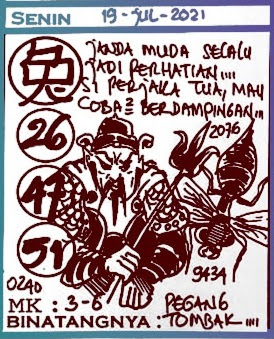 SENIN 19-JUL-2021
兔
JANDA MUDA SELALU
JADI PERHATIAN....
SI PERJAKA TUA, MAU
COBA² BERDAMPINGAN...
2076
26
47
51
9434
0240
MK : 3-6 PEGANG
BINATANGNYA : TOMBAK....